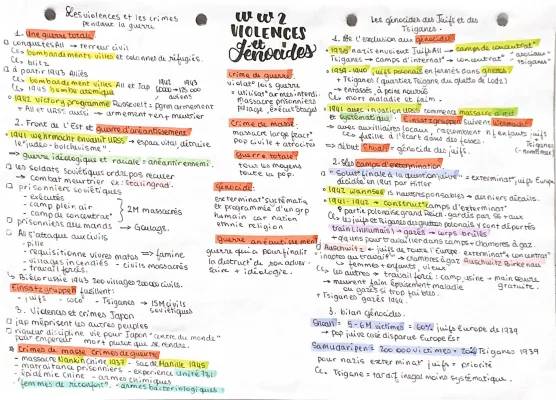 Les violences et les crimes
pendant la guerre
1. Une guerre totale
conquêtes All → terreur civil
↳ bombardements villes et colonnes de réfugiés.
↳ blitz
à partir 1942 Alliés
↳ bombardements villes All et Jap
↳ 1945 bombe atomique
1942 victory programme Roosevelt : pgrm armement
→ All et URSS aussi → armement + en + meurtrier
2. Front de l'Est et guerre d'anéantissement
1941 Wehrmacht envahit URSS → espace vital, détruire
le judéo-bolchévisme
⇒ guerre idéologique et raciale : anéantir ennemi
les soldats soviétiques ordre pas reculer
↳ combat meurtrier ex: Stalingrad.
prisonniers soviétiques
- exécutés
- camp plein air
- camp de concentrat°
2M massacrés
prisonniers allemands → Goulags.
All s'attaque aux civils
- pille
- réquisitionne vivres matos ⇒ famine
- villages incendiés → civils massacrés
- travail forcé.
↳ Biélorussie 1943 200 villages 20000 civils.
Einsatzgruppen fusillent
- juifs - coco - Tsiganes → 15M civils
soviétiques
3. Violences et crimes Japon
jap méprisent les autres peuples
rigueur discipline vie pour Japon "centre du monde"
pour empereur mort plutôt que se rendre.
Crimes de masse crimes de guerre
- massacre Nankin Chine 1937 - sac de Manille 1945
- maltraitance prisonniers - expérience Unité 731
- épidémie Chine - armes chimiques
"femmes de réconfort" - armes bactériologiques
WW2
VIOLENCES
et
Génocides
crime de guerre
violat° lois guerre
- utilisat° armes interdi
- massacre prisonniers
- pillage, exécut° otages
Crime de masse
massacre large échelle
pop civile + atrocités
Guerre totale
tous les moyens
toute la pop.
Génocide
exterminat° systématiq
et programmée d'un grp
humain car nation
ethnie religion
guerre anéantissement
guerre qui a pour finalité
la destruct° de son adver-
saire + idéologie.
Les génocides des Juifs et des
Tsiganes.
1. De l'exclusion aux génocides
Tsiganes → camps d'internat° → concentrat°
1939-1940 juifs polonais enfermés dans ghettos
+ Tsiganes (quartier Tsigane du ghetto de Lodz)
↳ entassés, à peine nourris
↳ mort maladie et faim.
1941 avec invasion URSS commence massacre direct
et systématique : Einsatzgruppen suivent Wehrmacht
↳ avec auxiliaires locaux, rassemblent n enfants juifs
↳ fusille à l'écart dans des fosses.
→ début Shoah = génocide des juifs.
2. Les camps d'extermination
"Solut° finale à la question juive" = exterminat° juifs Europe
décidée en 1941 par Hitler
1942 Wannsee : nazis responsables → derniers détails.
1941-1942 → construct° camps d'exterminat°
les juifs et Tsiganes des ghettos polonais y sont déportés
train (inhumain) → gazés → corps brûlés
qq uns pour travailler dans camps + chambres à gaz
inaptes au travail → chambres à gaz Auschwitz Birkenau
↳ femmes - enfants, vieux
↳ les autres → travail forcé : camp, usine → main œuvre
→ meurent faim épuisement maladie gratuite.
ou gazés si trop faibles
+ Tsiganes gazés 1944.
3. bilan génocides.
Shoah : 5-6M victimes = 60% juifs Europe de 1939
→ pop juive côté disparue Europe Est
Samudaripen : 200 000 victimes = 20% Tsiganes 1939
pour nazis exterminat° juifs = priorité
↳ Tsigane = tardif inégal moins systématique.